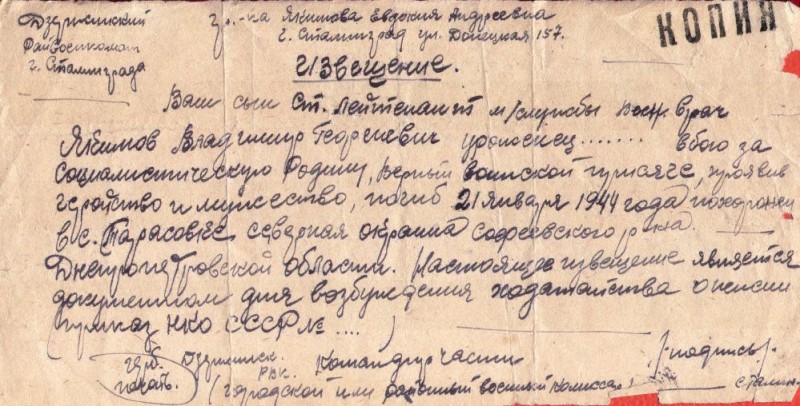 Дзержинский
Райвоенкомат
г. Сталинграда
гр-ка Якимова Евдокия Андреевна
г. Сталинград ул. Донецкая 157.
КОПИЯ
Извещение.
Ваш сын Ст. лейтенант м/службы Воен. врач
Якимов Владимир Георгиевич уроженец....... в бою за
Социалистическую Родину, верный воинской присяге, проявив
геройство и мужество, погиб 21 января 1944 года похоронен
в с. Тарасовке северная окраина Софеевского р-на.
Днепропетровской области. Настоящее извещение является
документом для возбуждения ходатайства о пенсии
приказ НКО СССР № ....)
герб. печать.
Дзержинск. РВК.
Командир части
/-подпись/-
(городской или районный военный комиссар)
Сталин-